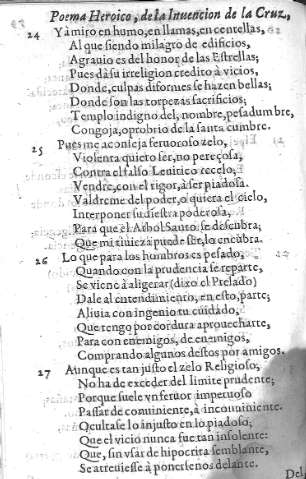 Poema Heroico, de la Inuencion de la Cruz,
24 Yà miro en humo, en llamas, en centellas,
Al que siendo milagro de edificios,
Agrauio es del honor de las Estrellas;
Pues dà su irreligion credito à vicios,
Donde, culpas diformes se hazen bellas;
Donde son las torpezas sacrificios;
Templo indigno del, nombre, pesadumbre,
Congoja, oprobrio de la santa cumbre.
25 Pues me aconseja feruoroso zelo,
Violenta quiero ser, no pereçosa,
Contra el falso Leuitico recelo;
Vendre, con el rigor, à ser piadosa,
Valdreme del poder, ò quiera el cielo,
Interponer su diestra poderosa,
Para que el Arbol Santo se descubra;
Que mi tibieza puede ser, lo encubra.
26 Lo que para los hombres es pesado,
Quando con la prudencia se reparte,
Se viene à aligerar (dixo el Prelado)
Dale al entendimiento, en esto, parte;
Aliuia con ingenio tu cuidado,
Que tengo por cordura aprouecharte,
Para con enemigos, de enemigos,
Comprando algunos destos por amigos.
27 Aunque es tan justo el zelo Religioso,
No ha de exceder del limite prudente;
Porque suele vn feruor impetuoso
Passar de conuiniente, à inconuiniente.
Ocultase lo injusto en lo piadoso;
Que el vicio nunca fue tan insolente:
Que, sin vsar de hipocrita semblante,
Se atreuiesse à ponersenos delante.